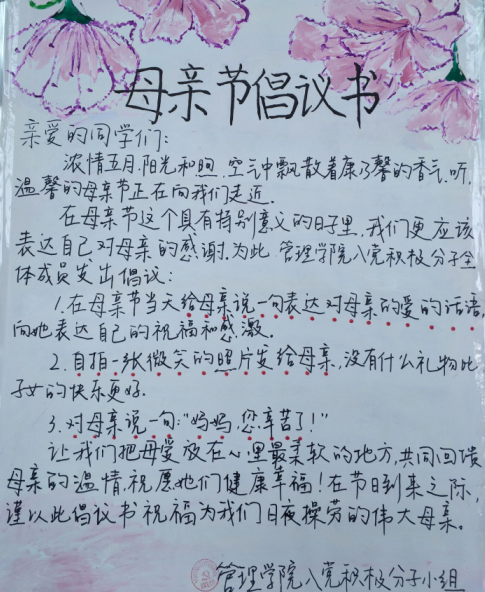 母亲节倡议书
亲爱的同学们:
浓情五月,阳光和煦,空气中飘散着康乃馨的香气,听,
温馨的母亲节正在向我们走近。
在母亲节这个具有特别意义的日子里,我们更应该
表达自己对母亲的感谢,为此,管理学院入党积极分子全
体成员发出倡议:
1.在母亲节当天给母亲说一句表达对母亲的爱的话语,
向她表达自己的祝福和感激。
2.自拍一张微笑的照片发给母亲,没有什么礼物比
子女的快乐更好。
3.对母亲说一句:“妈妈,您辛苦了!”
让我们把母爱放在心里最柔软的地方,共同回馈
母亲的温情,祝愿她们健康幸福!在节日到来之际,
谨以此倡议书祝福为我们日夜操劳的伟大母亲。
管理学院入党积极分子小组